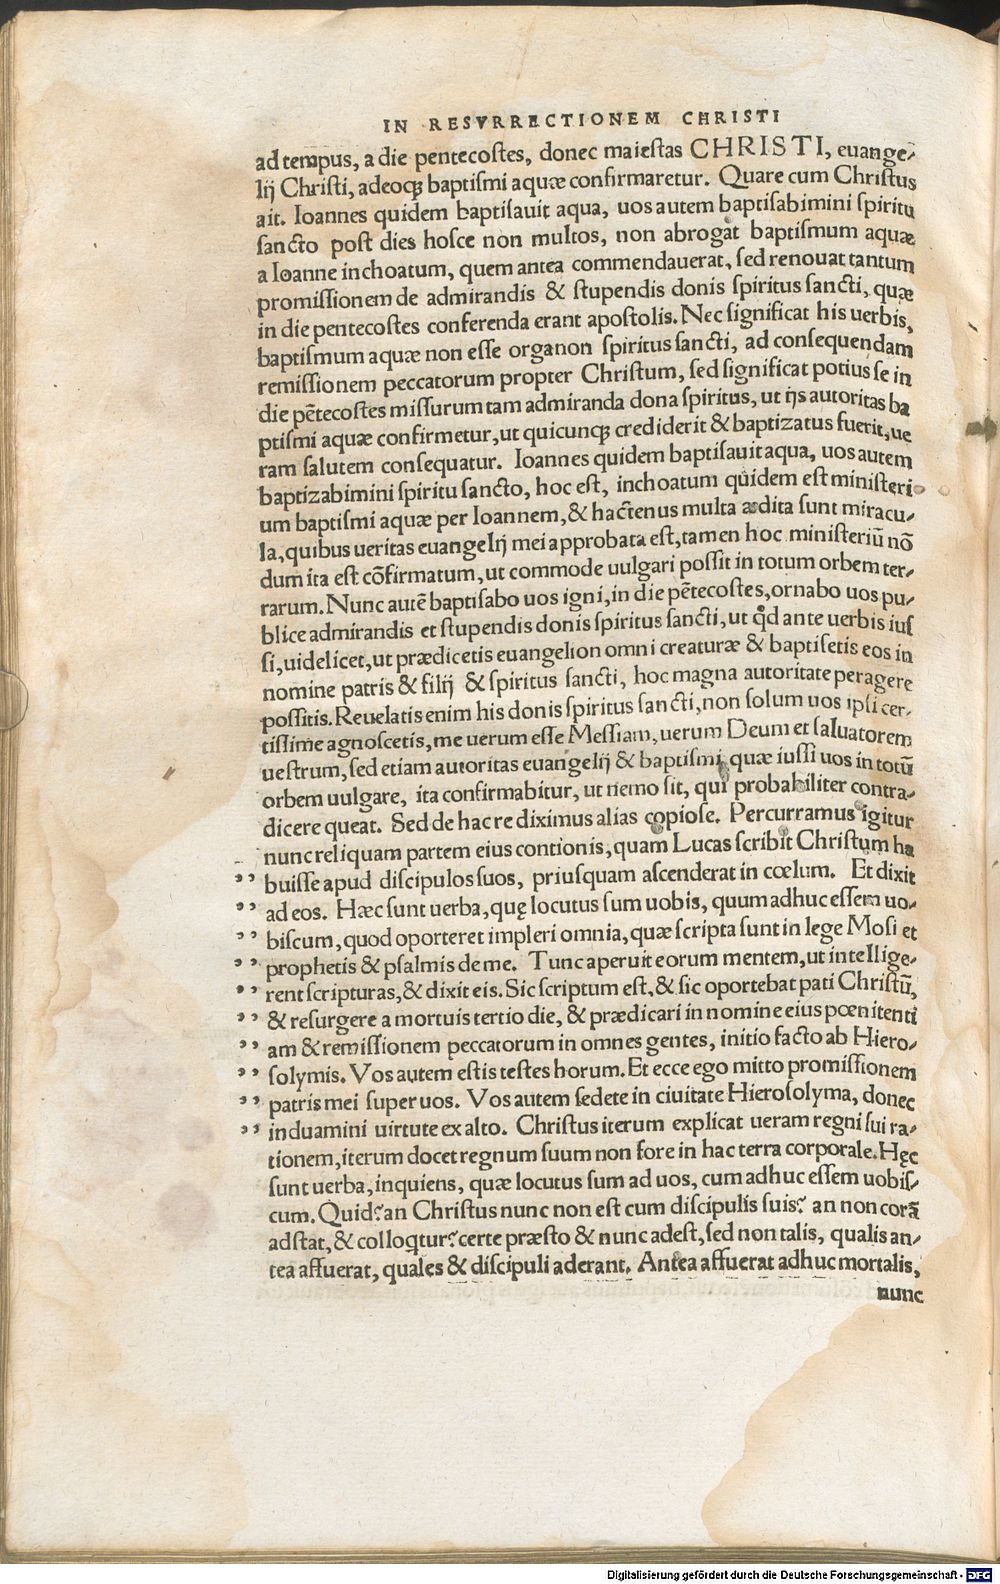 IN RESVRRECTIONEM CHRISTI
ad tempus, a die pentecostes, donec maiestas CHRISTI, euange-
lij Christi, adeoqꝫ baptismi aquæ confirmaretur. Quare cum Christus
ait. Ioannes quidem baptisauit aqua, uos autem baptisabimini spiritu
sancto post dies hosce non multos, non abrogat baptismum aquæ
a Ioanne inchoatum, quem antea commendauerat, sed renouat tantum
promissionem de admirandis & stupendis donis spiritus sancti, quæ
in die pentecostes conferenda erant apostolis. Nec significat his uerbis,
baptismum aquæ non esse organon spiritus sancti, ad consequendam
remissionem peccatorum propter Christum, sed significat potius se in
die pẽtecostes missurum tam admiranda dona spiritus, ut ijs autoritas ba
ptismi aquæ confirmetur, ut quicunqꝫ crediderit & baptizatus fuerit, ue
ram salutem consequatur. Ioannes quidem baptisauit aqua, uos autem
baptizabimini spiritu sancto, hoc est, inchoatum quidem est ministeri-
um baptismi aquæ per Ioannem, & hactenus multa ædita sunt miracu-
la, quibus ueritas euangelij mei approbata est, tamen hoc ministeriũ nõ
dum ita est cõfirmatum, ut commode uulgari possit in totum orbem ter-
rarum. Nunc autẽ baptisabo uos igni, in die pẽtecostes, ornabo uos pu-
blice admirandis et stupendis donis spiritus sancti, ut qd̉ ante uerbis ius
si, uidelicet, ut prædicetis euangelion omni creaturæ & baptisetis eos in
nomine patris & filij & spiritus sancti, hoc magna autoritate peragere
possitis. Reuelatis enim his donis spiritus sancti, non solum uos ipsi cer-
tissime agnoscetis, me uerum esse Messiam, uerum Deum et saluatorem
uestrum, sed etiam autoritas euangelij & baptismi, quæ iussi uos in totũ
orbem uulgare, ita confirmabitur, ut nemo sit, qui probabiliter contra-
dicere queat. Sed de hac re diximus alias copiose. Percurramus igitur
nunc reliquam partem eius contionis, quam Lucas scribit Christum ha
,, buisse apud discipulos suos, priusquam ascenderat in cœlum. Et dixit
,, ad eos. Hæc sunt uerba, quę locutus sum uobis, quum adhuc essem uo-
,, biscum, quod oporteret impleri omnia, quæ scripta sunt in lege Mosi et
,, prophetis & psalmis de me. Tunc aperuit eorum mentem, ut intellige-
,, rent scripturas, & dixit eis. Sic scriptum est, & sic oportebat pati Christũ,
,, & resurgere a mortuis tertio die, & prædicari in nomine eius pœnitenti
,, am & remissionem peccatorum in omnes gentes, initio facto ab Hiero-
,, solymis. Vos autem estis testes horum. Et ecce ego mitto promissionem
,, patris mei super uos. Vos autem sedete in ciuitate Hierosolyma, donec
,, induamini uirtute ex alto. Christus iterum explicat ueram regni sui ra-
tionem, iterum docet regnum suum non fore in hac terra corporale. Hęc
sunt uerba, inquiens, quæ locutus sum ad uos, cum adhuc essem uobis-
cum. Quid? an Christus nunc non est cum discipulis suis? an non corã
adstat, & colloqtur? certe præsto & nunc adest, sed non talis, qualis an-
tea affuerat, quales & discipuli aderant. Antea affuerat adhuc mortalis,
nunc
Digitalisierung gefördert durch die Deutsche Forschungsgemeinschaft - DFG